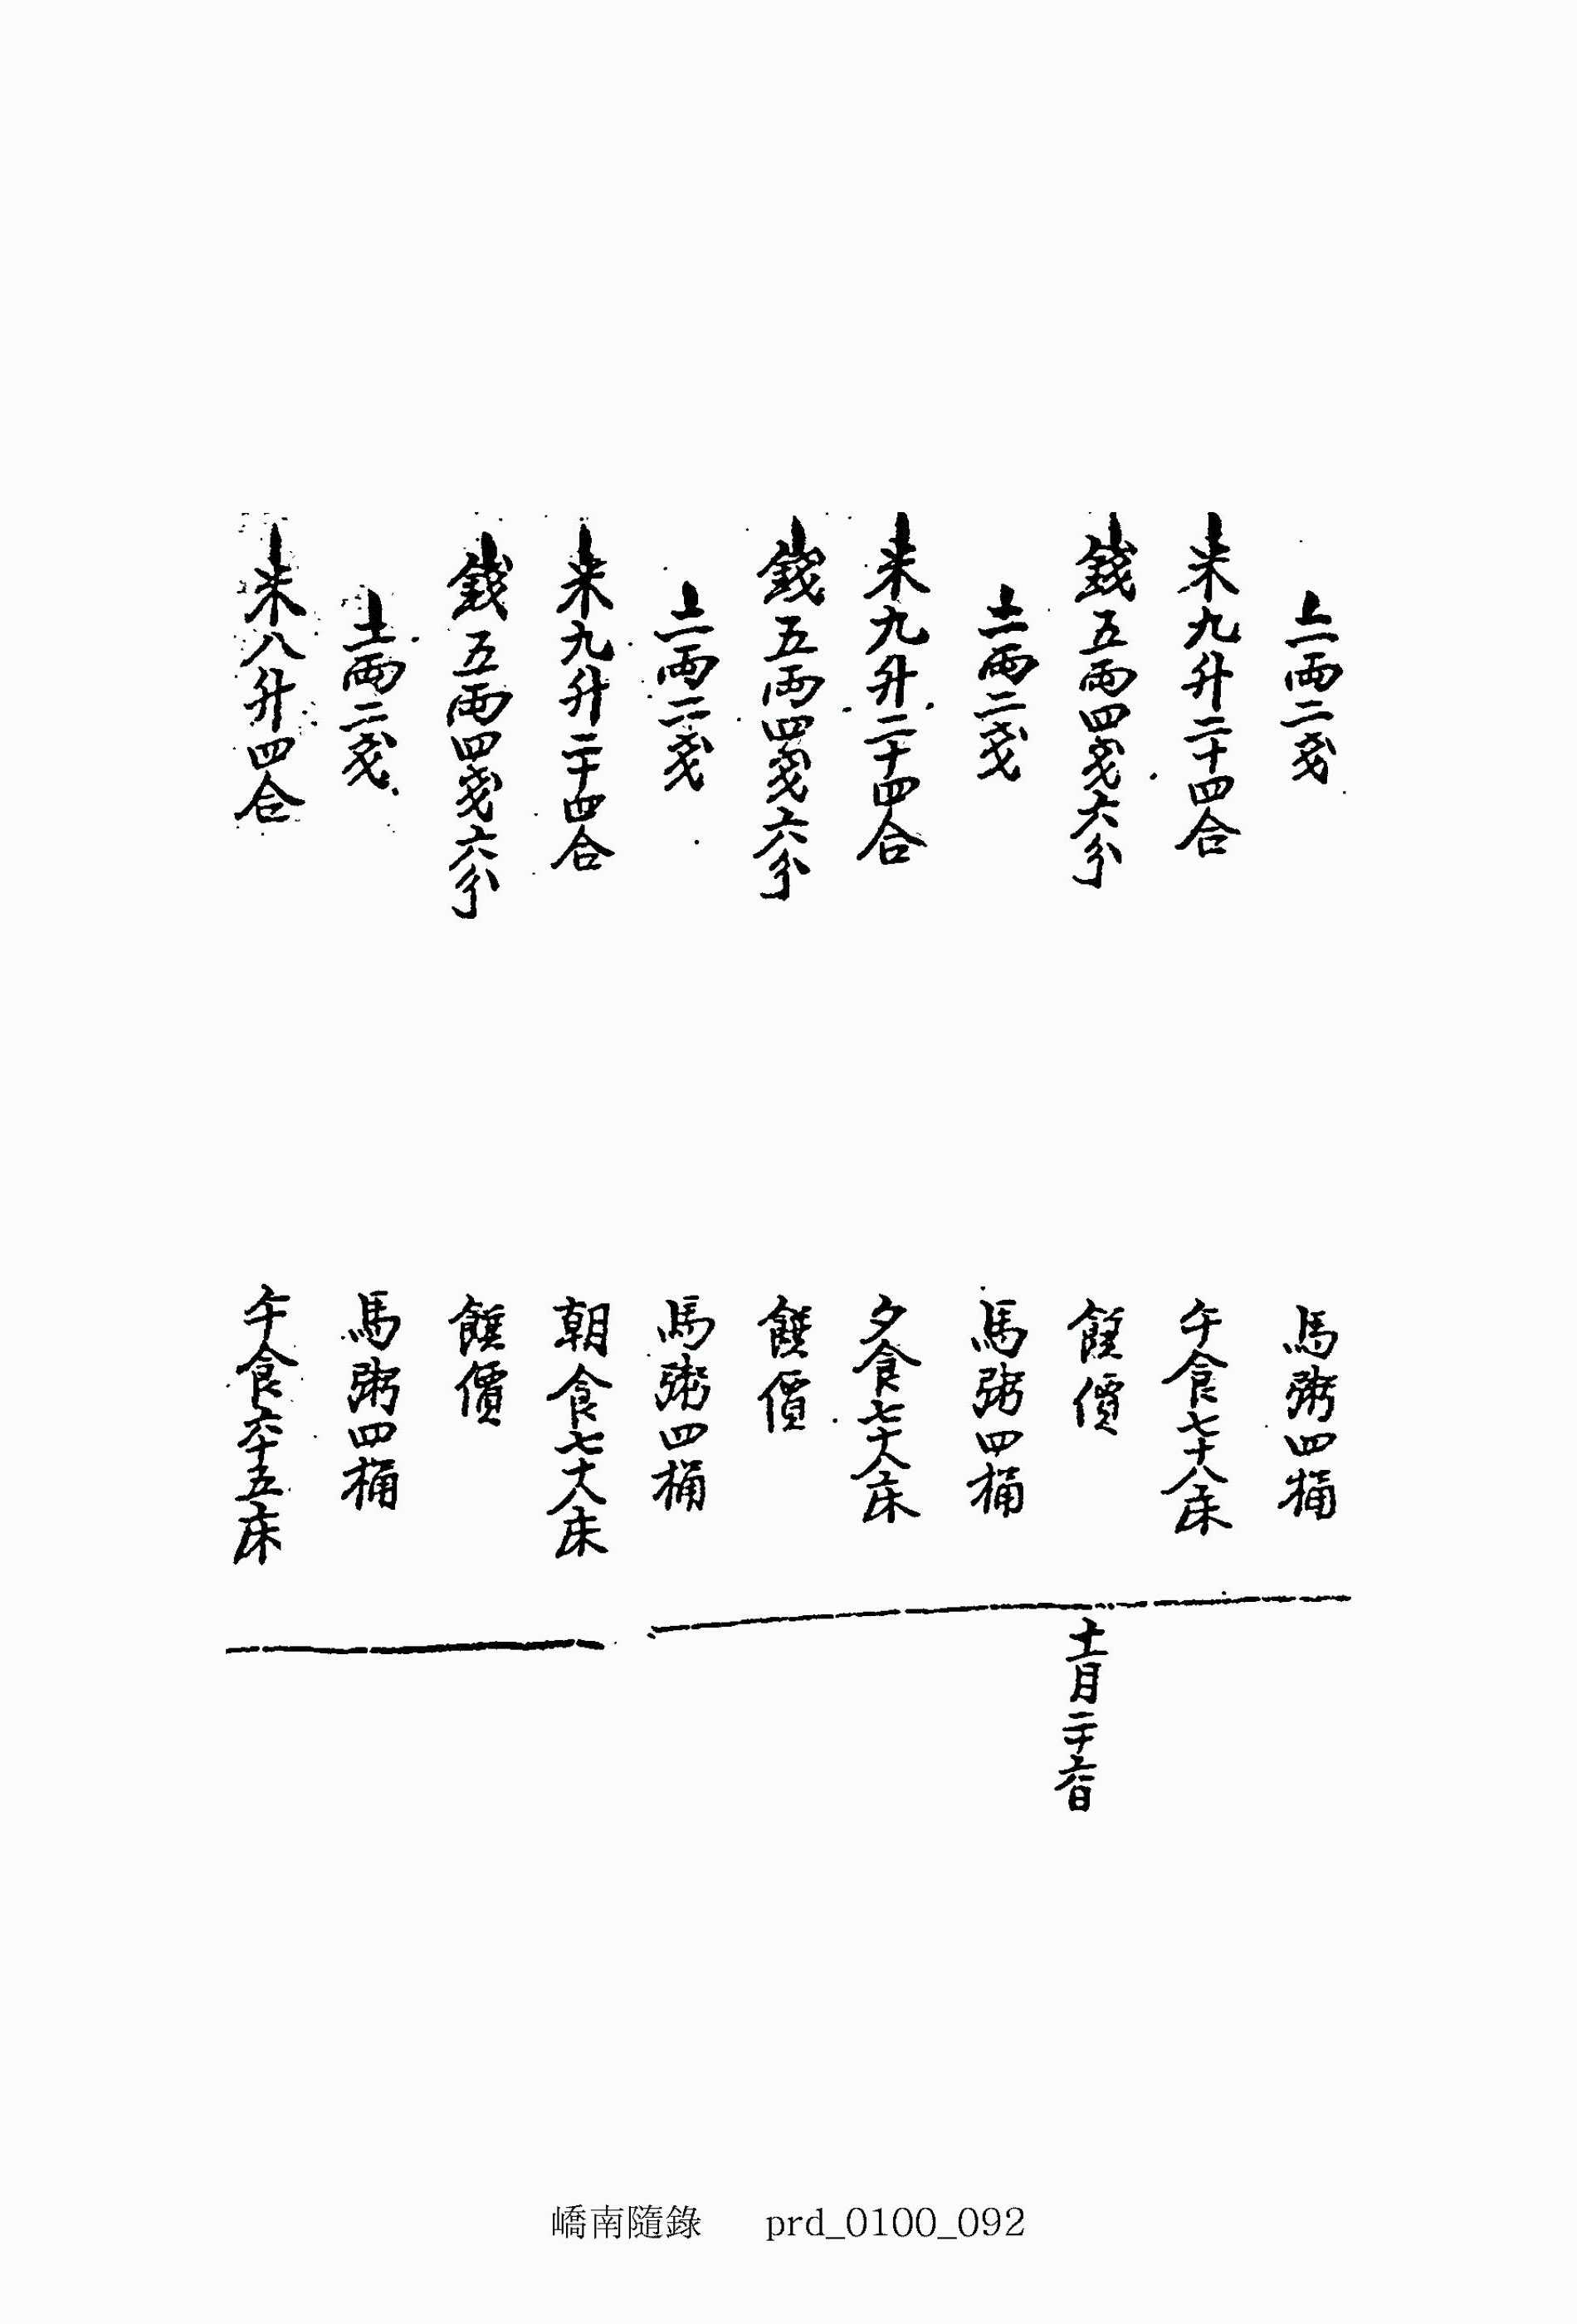 一両二戔
馬粥四桶
米九升二十四合
午食七十八床
錢五両四戔六分
饌價
一両二戔
馬粥四桶
米九升二十四合
夕食七十八床
錢五両四戔六分
饌價
一両二戔
馬粥四桶
十一月二十六日
米九升二十四合
朝食七十八床
錢五両四戔六分
饌價
一両二戔
馬粥四桶
米八升四合
午食六十五床
嶠南隨錄 prd_0100_092